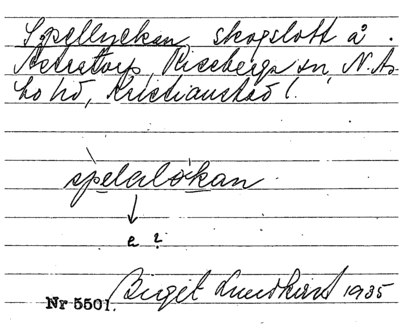 Spellyckan skogslott å
Åstratorp, Riseberga sn, N. Ås-
bo hd, Kristianstad l.
spelalókan
e ?
Nr 5501. Birgit Lundkvist 1935